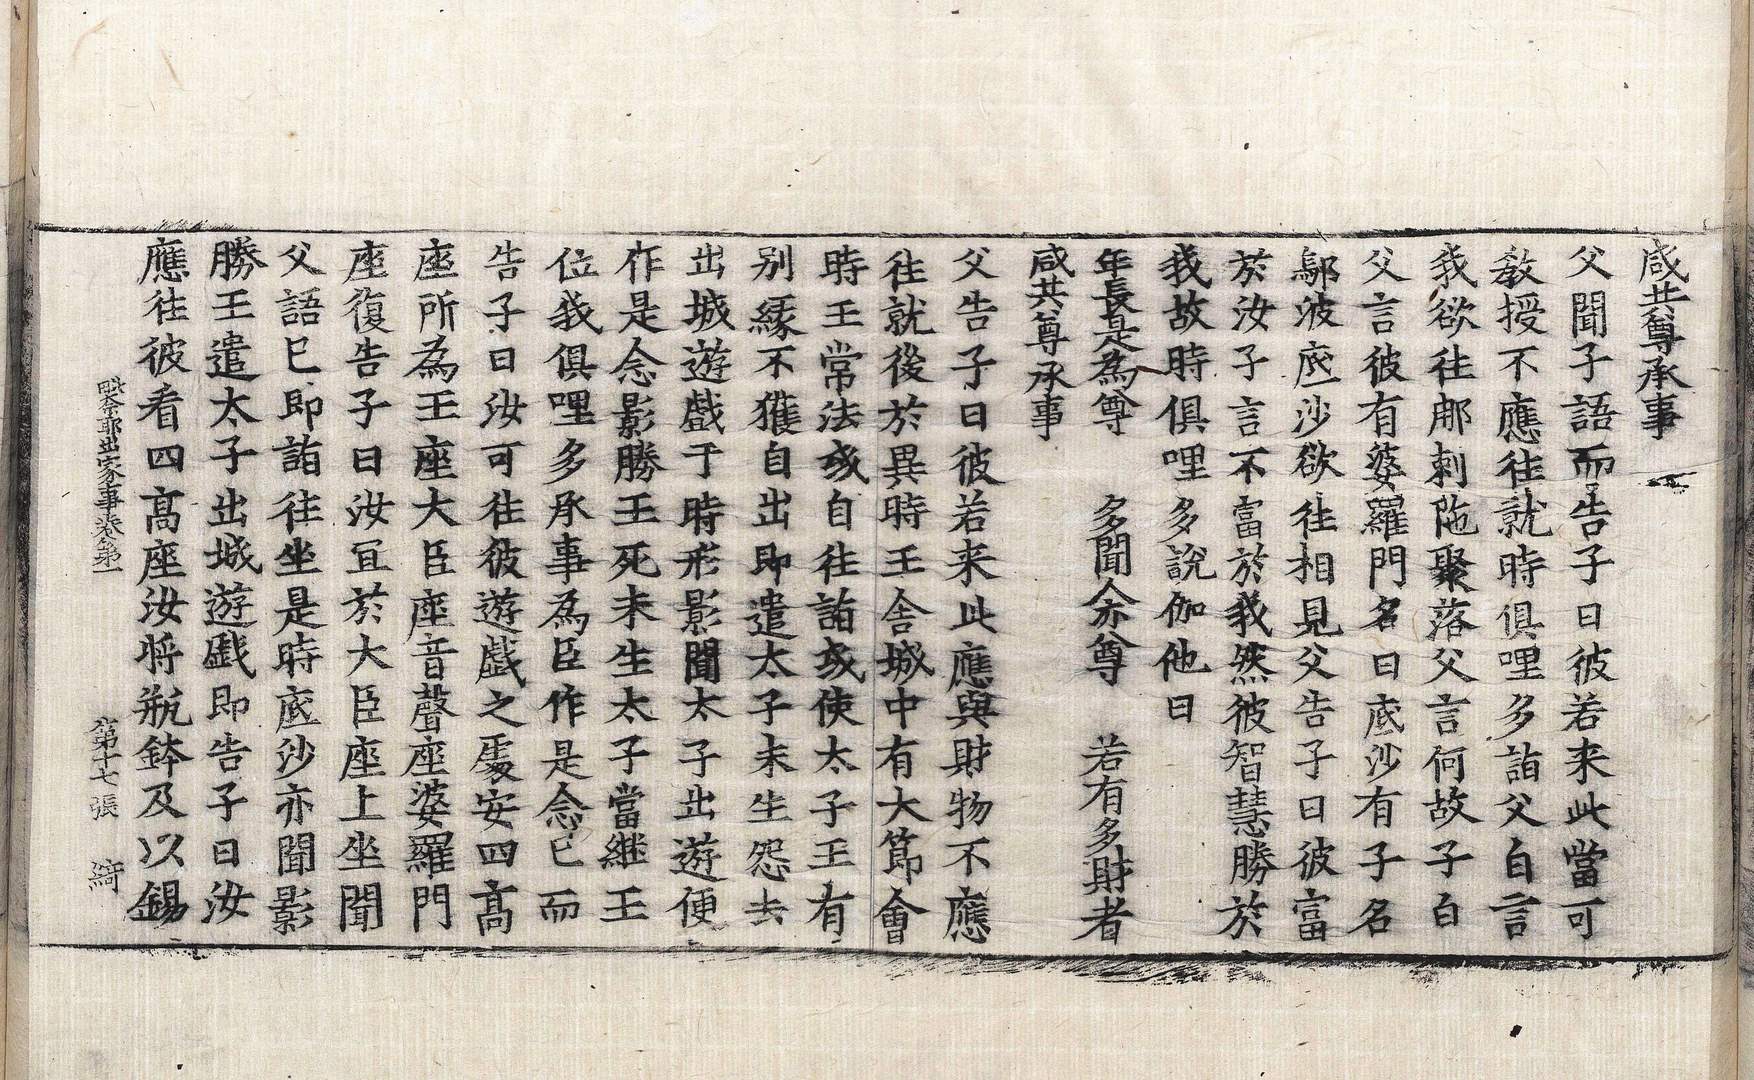 咸共尊承事
父聞子語而告子曰彼若来此當可
教授不應往就時俱哩多詣父白言
我欲往那剌陁聚落父言何故子白
父言彼有婆羅門名曰底沙有子名
鄔波底沙欲往相見父告子曰彼富
於汝子言不富於我然彼智慧勝於
我故時俱哩多說伽他曰
年長是為尊　多聞人亦尊　若有多財者
咸共尊承事
父告子曰彼若来此應與財物不應
往就後於異時王舍城中有大節會
時王常法或自往詣或使太子王有
別緣不獲自出即遣太子未生怨去
出城遊戲于時形影聞太子出遊便
作是念影勝王死未生太子當継王
位我俱哩多承事為臣作是念已而
告子曰汝可往彼遊戲之處安四高
座所為王座大臣座音聲座婆羅門
座復告子曰汝宜於大臣座上坐聞
父語已即詣往坐是時底沙亦聞影
勝王遣太子出城遊戲即告子曰汝
應往彼看四高座汝將瓶鉢及以錫
毗奈耶出家事卷第一　第十七張　綺